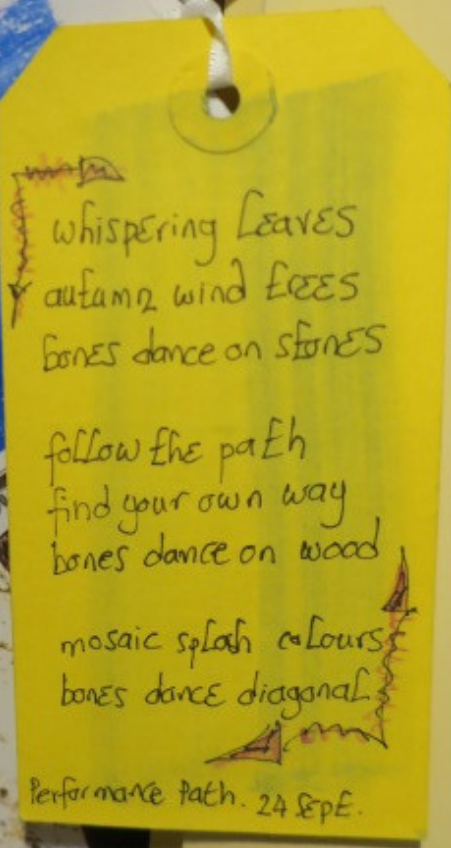 whispering leaves
autumn wind frees
bones dance on stones
follow the path
find your own way
bones dance on wood
mosaic splash colours
bones dance diagonal
Performance Path. 24 Sept.